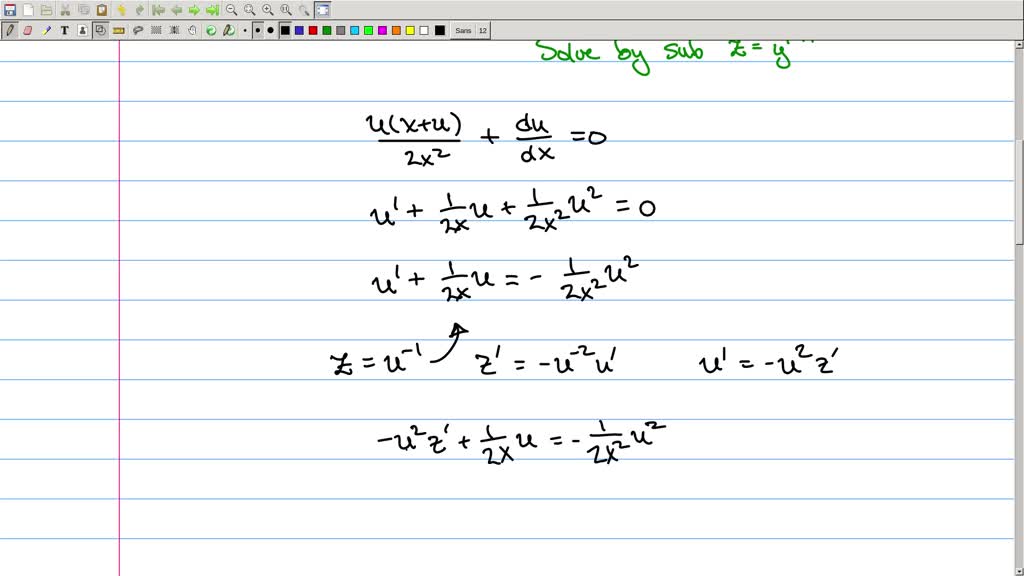 T
Sans 12
Solve by sub z = y
u(x+u)/2x² + du/dx = 0
u' + 1/2x u + 1/2x² u² = 0
u' + 1/2x u = - 1/2x² u²
z = u⁻¹ z' = -u⁻² u' u' = -u² z'
-u² z' + 1/2x u = - 1/2x² u²